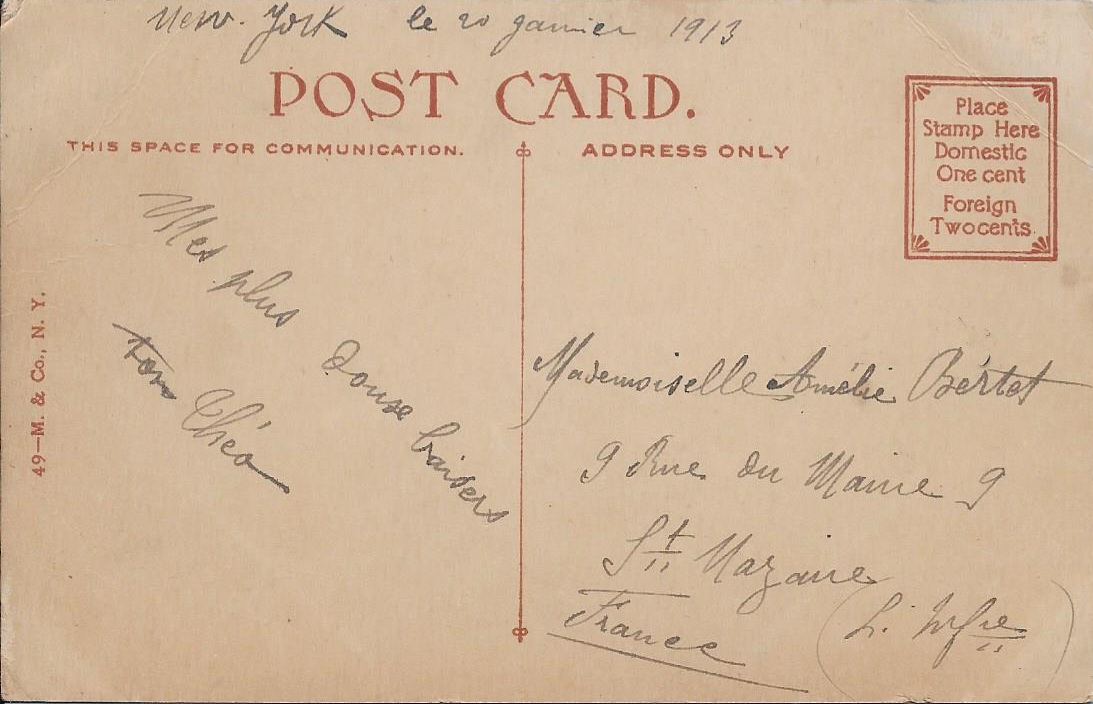 New-York le 20 ganvier 1913
POST CARD.
THIS SPACE FOR COMMUNICATION.
ADDRESS ONLY
Place
Stamp Here
Domestic
One cent
Foreign
Two cents.
49—M. & Co., N. Y.
Mes plus douse baisers
ton Théo
Mademoiselle Amélie Bértet
9 Rue du Maine 9
St Nazaire
France
(L. Infre)